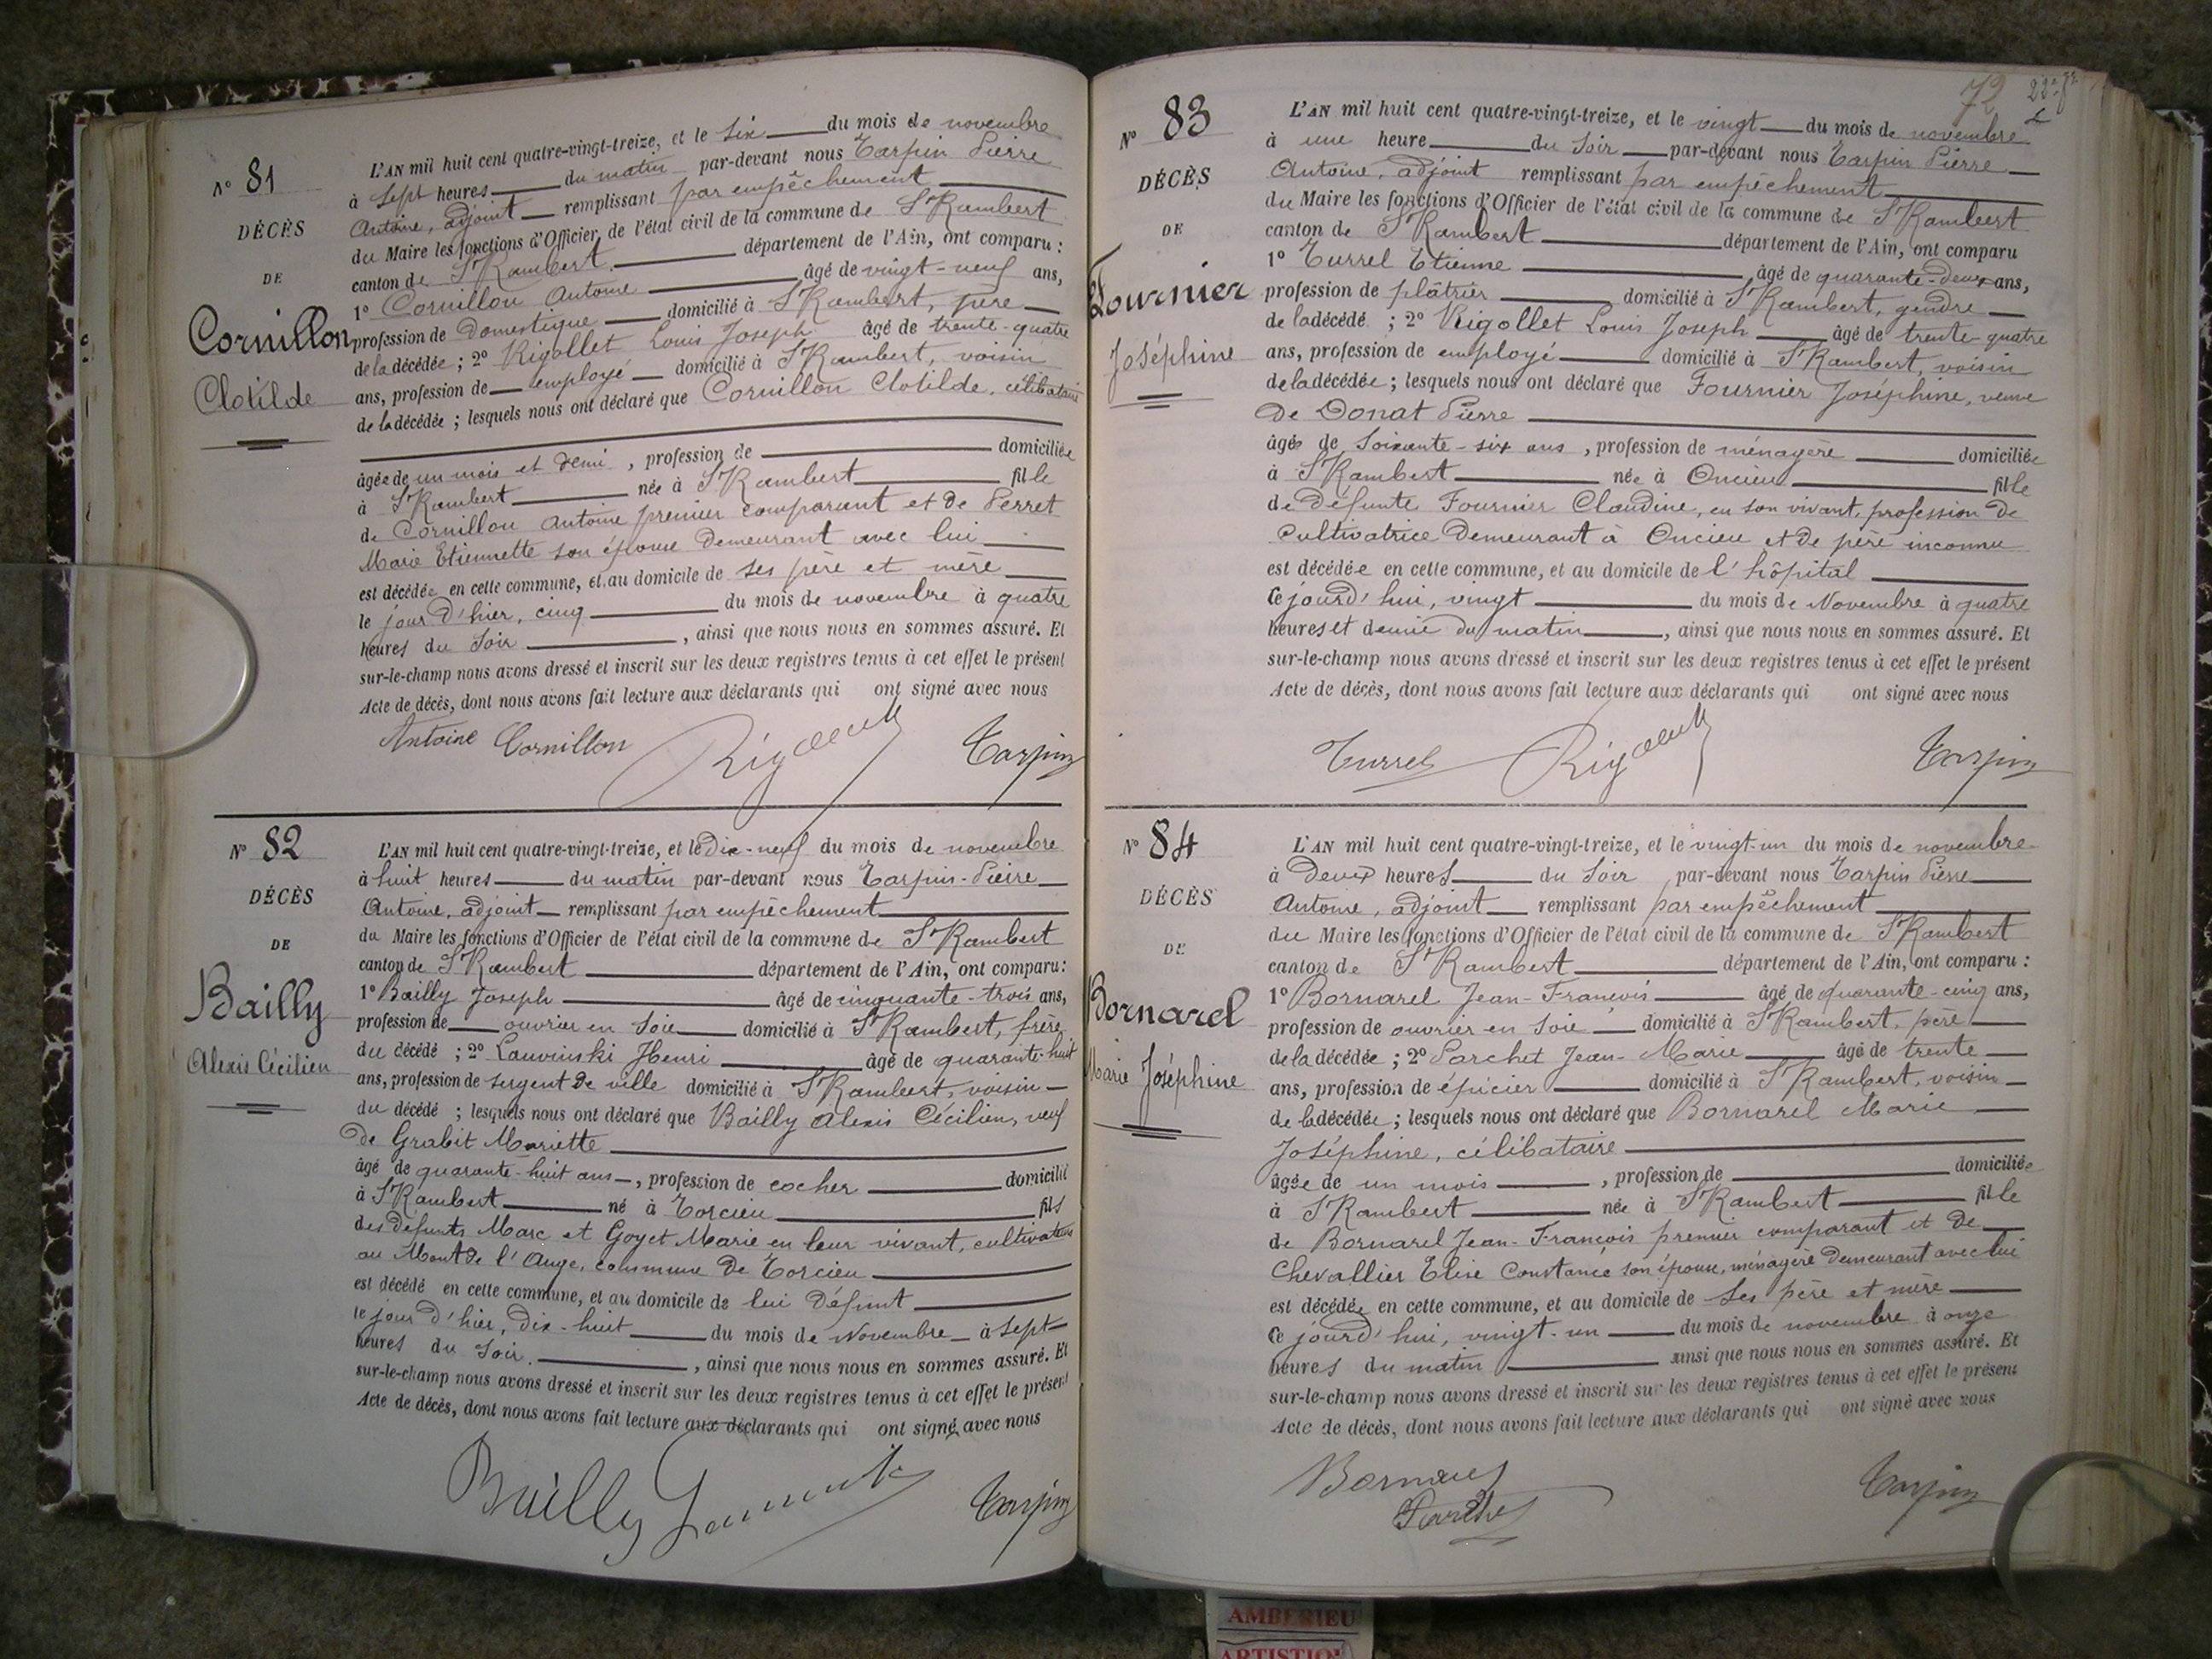 N° 81
DÉCÈS
DE
Cornillon
Clotilde
L'AN mil huit cent quatre-vingt-treize, et le six du mois de novembre
à sept heures du matin par-devant nous Tarpin Pierre
Antoine, adjoint remplissant par empêchement
du Maire les fonctions d'Officier de l'état civil de la commune de St Rambert
canton de St Rambert département de l'Ain, ont comparu :
1° Cornillon Antoine âgé de vingt-neuf ans,
profession de domestique domicilié à St Rambert, père
de la décédée ; 2° Rigollet Louis Joseph âgé de trente-quatre
ans, profession de employé domicilié à St Rambert, voisin
de la décédée ; lesquels nous ont déclaré que Cornillon Clotilde, célibataire
âgée de un mois et demi , profession de domiciliée
à St Rambert née à St Rambert fille
de Cornillon Antoine premier comparant et de Perret
Marie Etiennette son épouse demeurant avec lui
est décédée en cette commune, et au domicile de ses père et mère
le jour d'hier, cinq du mois de novembre à quatre
heures du soir , ainsi que nous nous en sommes assuré. Et
sur-le-champ nous avons dressé et inscrit sur les deux registres tenus à cet effet le présent
Acte de décès, dont nous avons fait lecture aux déclarants qui ont signé avec nous
Antoine Cornillon Tarpin
N° 82
DÉCÈS
DE
Bailly
Alexis Cécilien
L'AN mil huit cent quatre-vingt-treize, et le dix-neuf du mois de novembre
à huit heures du matin par-devant nous Tarpin-Pierre
Antoine, adjoint remplissant par empêchement
du Maire les fonctions d'Officier de l'état civil de la commune de St Rambert
canton de St Rambert département de l'Ain, ont comparu :
1° Bailly Joseph âgé de cinquante-trois ans,
profession de ouvrier en soie domicilié à St Rambert, frère
du décédé ; 2° Lauvinski Henri âgé de quarante-huit
ans, profession de sergent de ville domicilié à St Rambert, voisin
du décédé ; lesquels nous ont déclaré que Bailly Alexis Cécilien, veuf
de Grabit Mariette
âgé de quarante-huit ans , profession de cocher domicilié
à St Rambert né à Torcieu fils
des défunts Marc et Goyet Marie en leur vivant, cultivateurs
au Mont de l'Ange, commune de Torcieu
est décédé en cette commune, et au domicile de lui défunt
le jour d'hier, dix-huit du mois de Novembre à sept
heures du soir. , ainsi que nous nous en sommes assuré. Et
sur-le-champ nous avons dressé et inscrit sur les deux registres tenus à cet effet le présent
Acte de décès, dont nous avons fait lecture aux déclarants qui ont signé avec nous
Bailly Tarpin
72
N° 83
DÉCÈS
DE
Fournier
Joséphine
L'AN mil huit cent quatre-vingt-treize, et le vingt du mois de novembre
à une heure du soir par-devant nous Tarpin Pierre
Antoine, adjoint remplissant par empêchement
du Maire les fonctions d'Officier de l'état civil de la commune de St Rambert
canton de St Rambert département de l'Ain, ont comparu
1° Turrel Etienne âgé de quarante-deux ans,
profession de plâtrier domicilié à St Rambert, gendre
de la décédé ; 2° Rigollet Louis Joseph âgé de trente-quatre
ans, profession de employé domicilié à St Rambert, voisin
de la décédée ; lesquels nous ont déclaré que Fournier Joséphine, veuve
de Donat Pierre
âgée de soixante-six ans , profession de ménagère domiciliée
à St Rambert née à Oncieu fille
de défunte Fournier Claudine, en son vivant, profession de
cultivatrice demeurant à Oncieu et de père inconnu
est décédée en cette commune, et au domicile de l'hôpital
ce jourd'hui, vingt du mois de Novembre à quatre
heures et demie du matin , ainsi que nous nous en sommes assuré. Et
sur-le-champ nous avons dressé et inscrit sur les deux registres tenus à cet effet le présent
Acte de décès, dont nous avons fait lecture aux déclarants qui ont signé avec nous
Turrel Tarpin
N° 84
DÉCÈS
DE
Bornarel
Marie Joséphine
L'AN mil huit cent quatre-vingt-treize, et le vingt-un du mois de novembre
à deux heures du soir par-devant nous Tarpin Pierre
Antoine, adjoint remplissant par empêchement
du Maire les fonctions d'Officier de l'état civil de la commune de St Rambert
canton de St Rambert département de l'Ain, ont comparu :
1° Bornarel Jean-François âgé de quarante-cinq ans,
profession de ouvrier en soie domicilié à St Rambert, père
de la décédée ; 2° Parchet Jean-Marie âgé de trente
ans, profession de épicier domicilié à St Rambert, voisin
de la décédée ; lesquels nous ont déclaré que Bornarel Marie
Joséphine, célibataire
âgée de un mois , profession de domiciliée
à St Rambert née à St Rambert fille
de Bornarel Jean-François premier comparant et de
Chevallier Elise Constance son épouse, ménagère demeurant avec lui
est décédée en cette commune, et au domicile de ses père et mère
ce jourd'hui, vingt-un du mois de novembre à onze
heures du matin ainsi que nous nous en sommes assuré. Et
sur-le-champ nous avons dressé et inscrit sur les deux registres tenus à cet effet le présent
Acte de décès, dont nous avons fait lecture aux déclarants qui ont signé avec nous
Bornarel Tarpin
Parchet
AMBERIEU